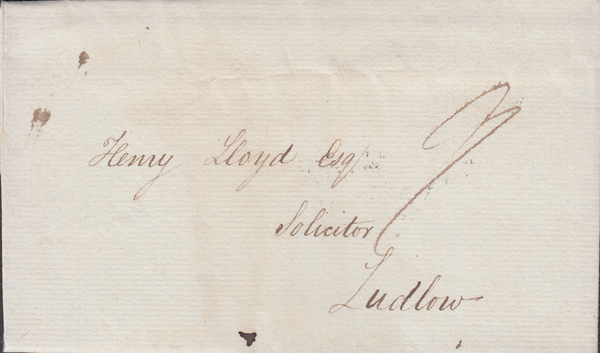 Henry Lloyd Esqr
Solicitor
Ludlow